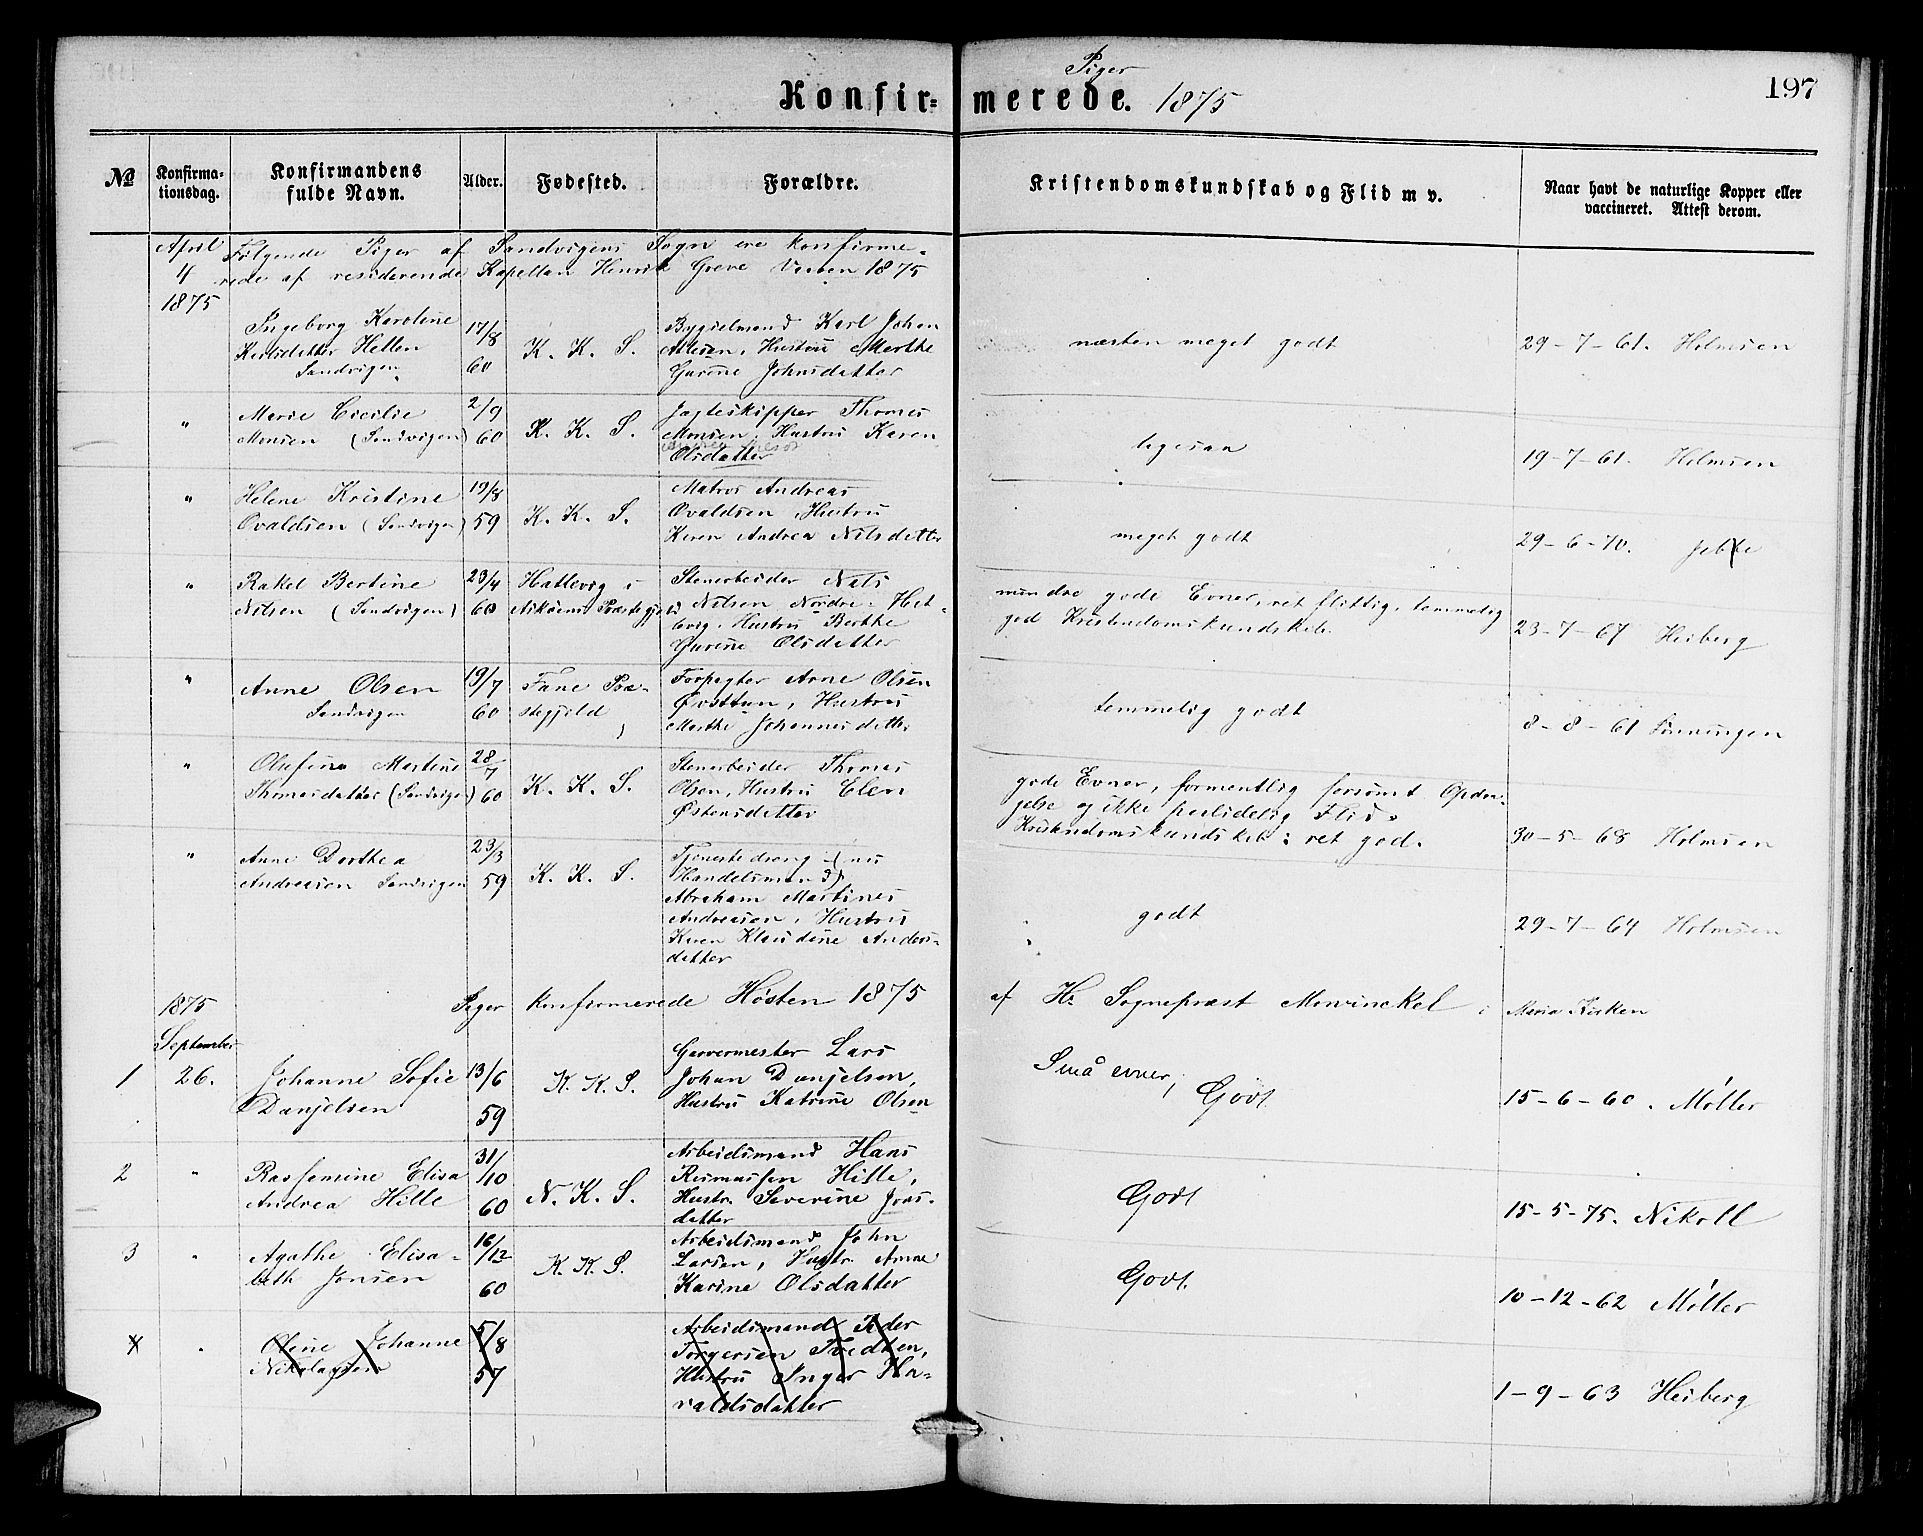 Piger
Konfir= merede. 1875
197
№
Konfirma-
tionsdag.
Konfirmandens
fulde Navn.
Alder.
Fødested.
Forældre.
Kristendomskundskab og Flid m v.
Naar havt de naturlige Kopper eller
vaccineret. Attest derom.
April
4
1875
Følgende Piger af Sandvigens Sogn ere konfirme-
rede af residerende Kapellan Henrik Greve 1875
Ingeborg Karoline
Hellen
Sandvigen
17/8
60
K. K. S.
Karl Johan
Hustru Marthe
Gurine Johnsdatter
næsten meget godt
29-7-61. Holmsen
"
Marie Cicilie
Monsen (Sandvigen)
2/9
60
K. K. S.
Jagteskipper Thomas
Monsen, Hustru Karen
Olsdatter
ligesaa
19-7-61. Holmsen
"
Helene Kristine
Ovaldsen (Sandvigen)
19/8
59
K. K. S.
Matros Andreas
Ovaldsen, Hustru
Karen Andrea Nilsdatter
meget godt
29-6-70.
"
Rakel Bertine
Nilsen (Sandvigen)
23/4
60
Hatlevig i
Stenarbeider Nils
Nilsen Nordre Hat-
levig, Hustru Berthe
Gurine Olsdatter
mindre gode Evner, ret flittig, temmelig
god Kristendomskundskab.
23-7-67 Heiberg
"
Anne Olsen
Sandvigen
19/7
60
Fane Præ-
stegjeld
Forpagter Arne Olsen
Øvsttun, Hustru
Marthe Johannesdatter
temmelig godt
8-8-61
"
Olufine Martine
Thomasdatter (Sandvigen)
28/7
60
K. K. S.
Stenarbeider Thomas
Olsen, Hustru Elen
Østensdatter
gode Evner, formentlig forsømt Opdra-
gelse og ikke paalidelig Flid.
Kristendomskundskab: ret god.
30-5-68 Holmsen
"
Anne Dorthea
Andreasen Sandvigen
23/3
59
K. K. S.
Tjenestedreng (nu
Handelsmand)
Abraham Martinus
Andreasen, Hustru
Karen Klaudine Anders-
datter
godt
29-7-64 Holmsen
1875
Piger konfirmerede Høsten 1875 af Hr Sognepræst Mowinckel i Maria Kirken
September
1
26.
Johanne Sofie
Danjelsen
13/6
59
K. K. S.
Garvermester Lars
Johan Danjelsen,
Hustru Katrine Olsen
Små evner,
Godt
15-6-60. Møller
2
"
Rasmine Elisa
Andrea Hille
31/10
60
N. K. S.
Arbeidsmand Hans
Rasmussen Hille,
Hustr. Severine Joas-
datter
Godt
15-5-75. Nikoll
3
"
Agathe Elisa-
beth Jonsen
16/12
60
K. K. S.
Arbeidsmand John
Larsen, Hustr. Anne
Karine Olsdatter
Godt.
10-12-62 Møller
Oline Johanne
Nikolaysen
5/8
57
Arbeidsmand Peder
Torgersen Tvedten,
Hustru Inger Ha-
raldsdatter
1-9-63 Heiberg